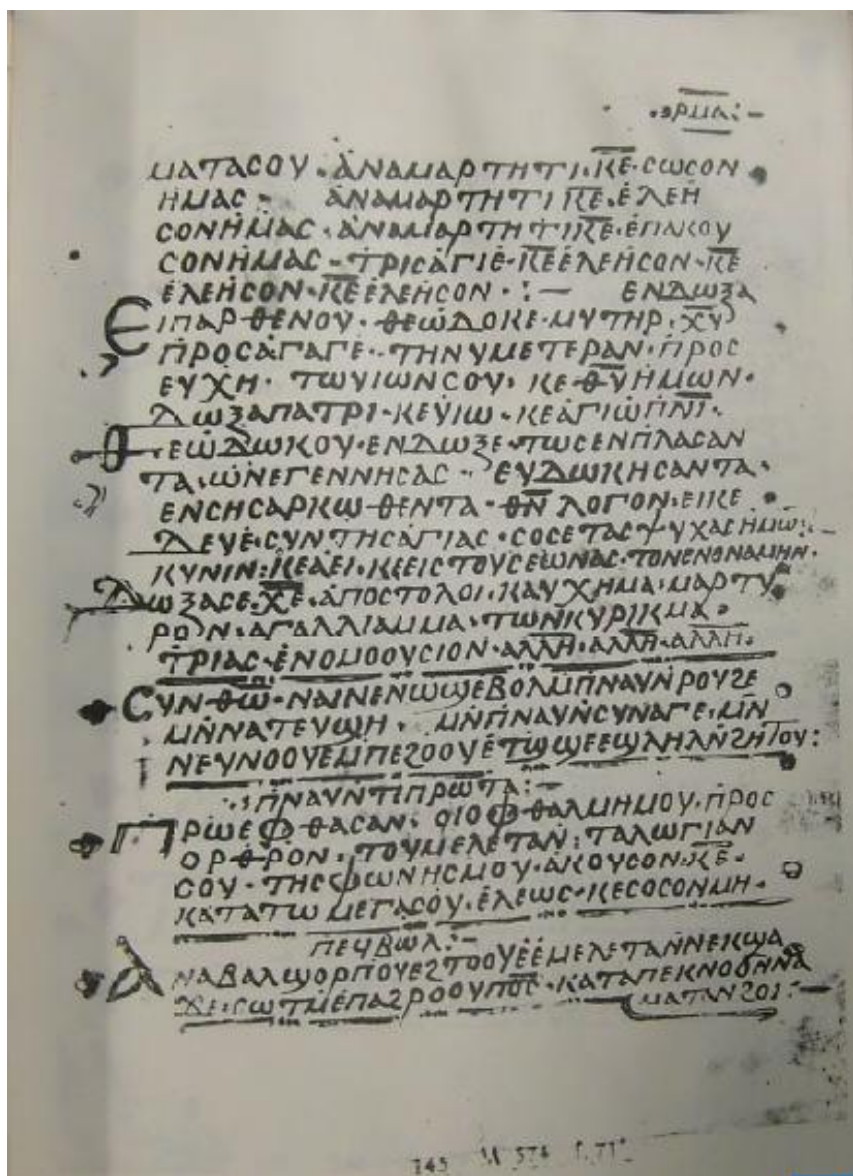 ⲢⲘⲀ:-
ⲘⲀⲦⲀⲤⲞⲨ·ⲀⲚⲀⲘⲀⲢⲦⲎⲦⲒ·ⲔⲈ̅·ⲤⲰⲤⲞⲚ
ⲎⲘⲀⲤ- ⲀⲚⲀⲘⲀⲢⲦⲎⲦⲒ ⲔⲈ̅·ⲈⲖⲈⲎ
ⲤⲞⲚⲎⲘⲀⲤ·ⲀⲚⲀⲘⲀⲢⲦⲎⲦⲒⲔⲈ̅·ⲈⲠⲀⲔⲞⲨ
ⲤⲞⲚⲎⲘⲀⲤ-ⲦⲢⲒⲤⲀⲄⲒⲈ·ⲔⲈ̅ⲈⲖⲈⲎⲤⲞⲚ·ⲔⲈ̅
ⲈⲖⲈⲎⲤⲞⲚ·ⲔⲈ̅ⲈⲖⲈⲎⲤⲞⲚ·:- ⲈⲚⲆⲰⲜⲀ
ⲈⲒⲠⲀⲢⲐⲈⲚⲞⲨ·ⲐⲈⲰⲆⲞⲔⲈ·ⲘⲨⲦⲎⲢ·ⲬⲨ̅
ⲠⲢⲞⲤⲀⲄⲀⲄⲈ·ⲦⲎⲚⲨⲘⲈⲦⲈⲢⲀⲚ·ⲠⲢⲞⲤ
ⲈⲨⲬⲎ·ⲦⲰⲨⲒⲰⲚⲤⲞⲨ·ⲔⲈ·ⲐⲨ̅ⲎⲘⲰⲚ·
ⲆⲰⲜⲀⲠⲀⲦⲢⲒ·ⲔⲈⲨⲒⲰ·ⲔⲈⲀⲄⲒⲰⲠⲚⲒ̅·
ⲐⲈⲰⲆⲰⲔⲞⲨ·ⲈⲚⲆⲰⲜⲈ·ⲦⲰⲤⲈⲚⲠⲖⲀⲤⲀⲚ
ⲦⲀ·ⲰⲚⲈⲄⲈⲚⲚⲎⲤⲀⲤ· ⲈⲨⲆⲰⲔⲎⲤⲀⲚⲦⲀ·
ⲈⲚⲤⲎⲤⲀⲢⲔⲰⲐⲈⲚⲦⲀ·ⲐⲚ̅ ⲖⲞⲄⲞⲚ·ⲈⲒⲔⲈ
ⲆⲈⲨⲈ·ⲤⲨⲚⲦⲎⲤⲀⲄⲒⲀⲤ·ⲤⲞⲤⲈⲦⲀⲤⲮⲨⲬⲀⲤⲎⲘⲰ:-
ⲔⲨⲚⲒⲚ:ⲔⲈⲀⲈⲒ·ⲔⲈⲈⲒⲤⲦⲞⲨⲤⲈⲰⲚⲀⲤ·ⲦⲞⲚⲈⲚⲞⲚⲀⲘⲎⲚ·
ⲆⲰⲜⲀⲤⲈ·ⲬⲈ̅·ⲀⲠⲞⲤⲦⲞⲖⲞⲒ·ⲔⲀⲨⲬⲎⲘⲀ·ⲘⲀⲢⲦⲨ
ⲢⲞⲚ·ⲀⲄⲀⲖⲖⲒⲀⲘⲘⲀ·ⲦⲰⲚⲔⲨⲢⲒⲔⲘⲀ·
ⲦⲢⲒⲀⲤ·ⲈⲚⲞⲘⲞⲞⲨⲤⲒⲞⲚ·ⲀⲖⲖⲎ·ⲀⲖⲖⲎ·ⲀⲖⲖⲎ·
ⲤⲨⲚ·ⲐⲰ̅·ⲚⲀⲒⲚⲈⲚⲰϢⲈⲂⲞⲖⲘⲠⲚⲀⲨⲚⲢⲞⲨϨⲈ
ⲘⲚⲚⲀⲦⲈⲨϢⲎ· ⲘⲚⲠⲚⲀⲨⲚⲤⲨⲚⲀⲄⲈ·ⲘⲚ
ⲚⲈⲨⲚⲞⲞⲨⲈⲘⲠⲈϨⲞⲞⲨⲈⲦⲰϢⲈⲈϢⲖⲎⲖⲚϨⲎⲦⲞⲨ:
ⲠⲚⲀⲨⲚⲦⲒⲠⲢⲰⲦⲀ:-
ⲠⲢⲰⲈⲪⲐⲀⲤⲀⲚ·ⲞⲒⲞⲪⲐⲀⲖⲘⲎⲘⲞⲨ·ⲠⲢⲞⲤ
ⲞⲢⲐⲢⲞⲚ·ⲦⲞⲨⲘⲈⲖⲈⲦⲀⲚ:ⲦⲀⲖⲰⲄⲒⲀⲚ
ⲤⲞⲨ·ⲦⲎⲤⲪⲰⲚⲎⲤⲘⲞⲨ·ⲀⲔⲞⲨⲤⲞⲚ·ⲔⲈ̅·
ⲔⲀⲦⲀⲦⲰ ⲘⲈⲄⲀⲤⲞⲨ·ⲈⲖⲈⲰⲤ·ⲔⲈⲤⲞⲤⲞⲚⲘⲎ·
ⲠⲈϤⲂⲰⲖ:-
ⲀⲚⲀⲂⲀⲖϢⲞⲢⲠⲞⲨⲈϨⲦⲞⲞⲨⲈⲈⲘⲈⲖⲈⲦⲀⲚⲚⲈⲔϢⲀ
ϪⲈ·ⲤⲰⲦⲘⲈⲠⲀϨⲢⲞⲞⲨⲠⲞ̅Ⲥ̅·ⲔⲀⲦⲀⲠⲈⲔⲚⲞϬⲚⲚⲀ
ⲘⲀⲦⲀⲚϨⲞⲒ:-
145 M 574 f. 71